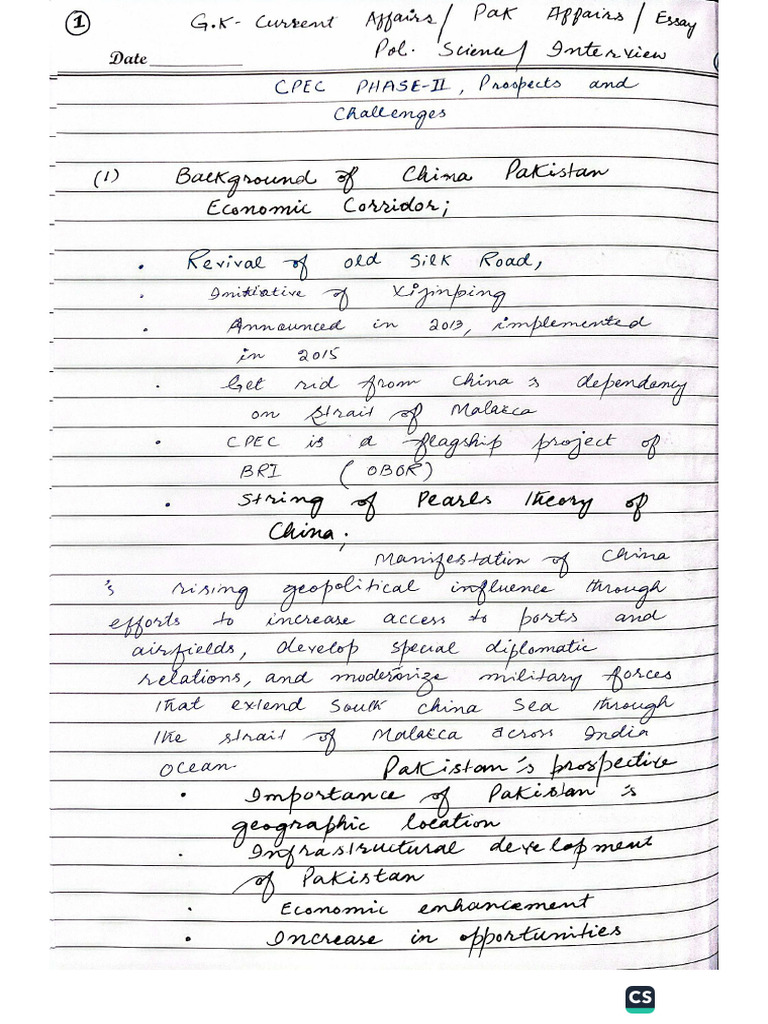 1
G.K- Current Affairs/ Pak Affairs / Essay
Pol. Science/ Interview
Date
CPEC PHASE-II, Prospects and
Challenges
(1) Background of China Pakistan
Economic Corridor;
• Revival of old Silk Road,
• Initiative of Xijinping
• Announced in 2013, implemented
in 2015
• Get rid from China's dependency
on Strait of Malacca
• CPEC is a flagship project of
BRI (OBOR)
• String of Pearls theory of
China;
Manifestation of China
's rising geopolitical influence through
efforts to increase access to ports and
airfields, develop special diplomatic
relations, and modernize military forces
that extend South China Sea through
the strait of Malacca across India
Ocean.
Pakistan's prospective
• Importance of Pakistan's
geographic location
• Infrastructural development
of Pakistan
• Economic enhancement
• Increase in opportunities
CS